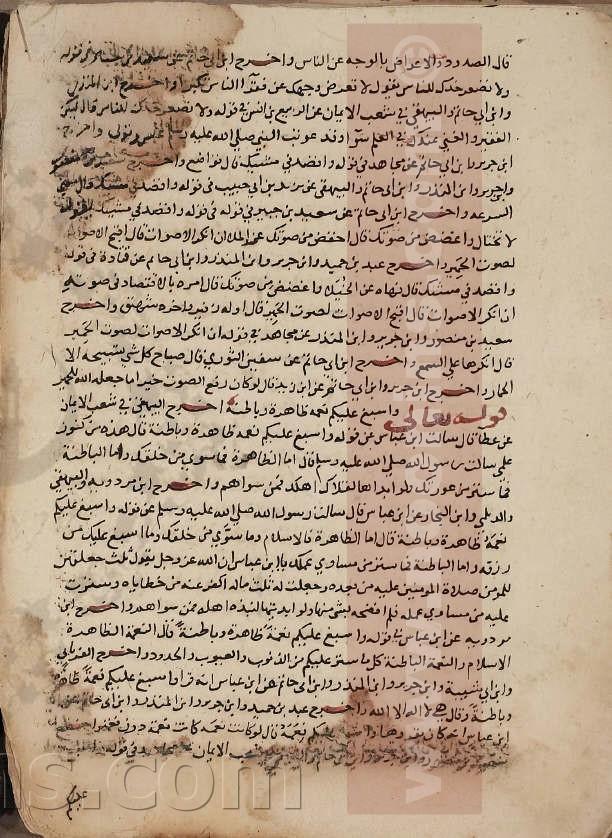 قال الصدود والاعراض بالوجه عن الناس واخرج ابن ابى حاتم عن سعيد بن جبير فى قوله
ولا تصعر خدك للناس يقول لا تعرض وجهك عن فقراء الناس تكبرا واخرج ابن المنذر
وابن ابى حاتم والبيهقى فى شعب الايمان عن الربيع بن انس فى قوله ولا تصعر خدك للناس قال ليكن
الفقير والغنى عندك فى العلم سوا وقد عوتب النبى صلى الله عليه وسلم عبس وتولى واخرج
ابن جرير وابن ابى حاتم عن مجاهد فى قوله واقصد فى مشيك قال تواضع واخرج
وابن جرير وابن المنذر وابن ابى حاتم والبيهقى عن يزيد بن ابى حبيب فى قوله واقصد فى مشيك قال يعنى
السرعه واخرج ابن ابى حاتم عن سعيد بن جبير فى قوله واقصد فى مشيك يقول
لا تختال واغضض من صوتك قال اخفض من صوتك عن الملا ان انكر الاصوات قال اقبح الاصوات
لصوت الحمير واخرج عبد بن حميد وابن جرير وابن المنذر وابن ابى حاتم عن قتادة فى قوله
واقصد فى مشيك قال نهاه عن الخيلا واغضض من صوتك قال امره بالاقتصاد فى صوته
ان انكر الاصوات قال اقبح الاصوات لصوت الحمير قال اوله زفير واخره شهيق واخرج
سعيد بن منصور وابن جرير وابن المنذر عن مجاهد فى قوله ان انكر الاصوات لصوت الحمير
قال انكرها على السمع واخرج ابن ابى حاتم عن سفين الثورى قال صياح كل شى تسبيحه الا
الحمار واخرج ابن جرير وابن ابى حاتم عن ابن زيد قال لو كان رفع الصوت خيرا ما جعله الله للحمير
قوله تعالى واسبغ عليكم نعمه ظاهرة وباطنة اخرج البيهقى فى شعب الايمان
عن عطا قال سالت ابن عباس عن قوله واسبغ عليكم نعمه ظاهرة وباطنة قال هذه من كنوز
على سالت رسول الله صلى الله عليه وسلم قال اما الظاهرة فما سوى من خلقك واما الباطنة
فما ستر من عورتك ولو ابداها لقلاك اهلك فمن سواهم واخرج ابن مردويه والبيهقى
والديلمى وابن النجار عن ابن عباس قال سالت رسول الله صلى الله عليه وسلم عن قوله واسبغ عليكم
نعمه ظاهرة وباطنة قال اما الظاهرة فالاسلام وما سوى من خلقك وما اسبغ عليك من
رزقه واما الباطنة فما ستر من مساوى عملك يا ابن عباس ان الله عز وجل يقول ثلث جعلتهن
للمومن صلاة المومنين عليه من بعده وجعلت له ثلث ماله اكفر عنه من خطاياه وسترت
عليه من مساوى عمله فلم افضحه بشى منها ولو ابديتها لنبذه اهله فمن سواهم واخرج ابن
مردويه عن ابن عباس فى قوله واسبغ عليكم نعمة ظاهرة وباطنة قال النعمة الظاهرة
الاسلام والنعمة الباطنة كل ما ستر عليكم من الذنوب والعيوب والحدود واخرج الفريابى
وابن ابى شيبة وابن جرير وابن المنذر وابن ابى حاتم عن ابن عباس انه قرا واسبغ عليكم نعمة ظاهرة
وباطنة وقال هى لا اله الا الله واخرج عبد بن حميد وابن جرير وابن المنذر وابن ابى حاتم عن
ابن عباس انه كان يقروها واسبغ عليكم نعمة قال لو كانت نعمه كانت نعمة دون نعمة
وابن جرير وابن ابى حاتم شعب الايمان فى قوله
عليكم